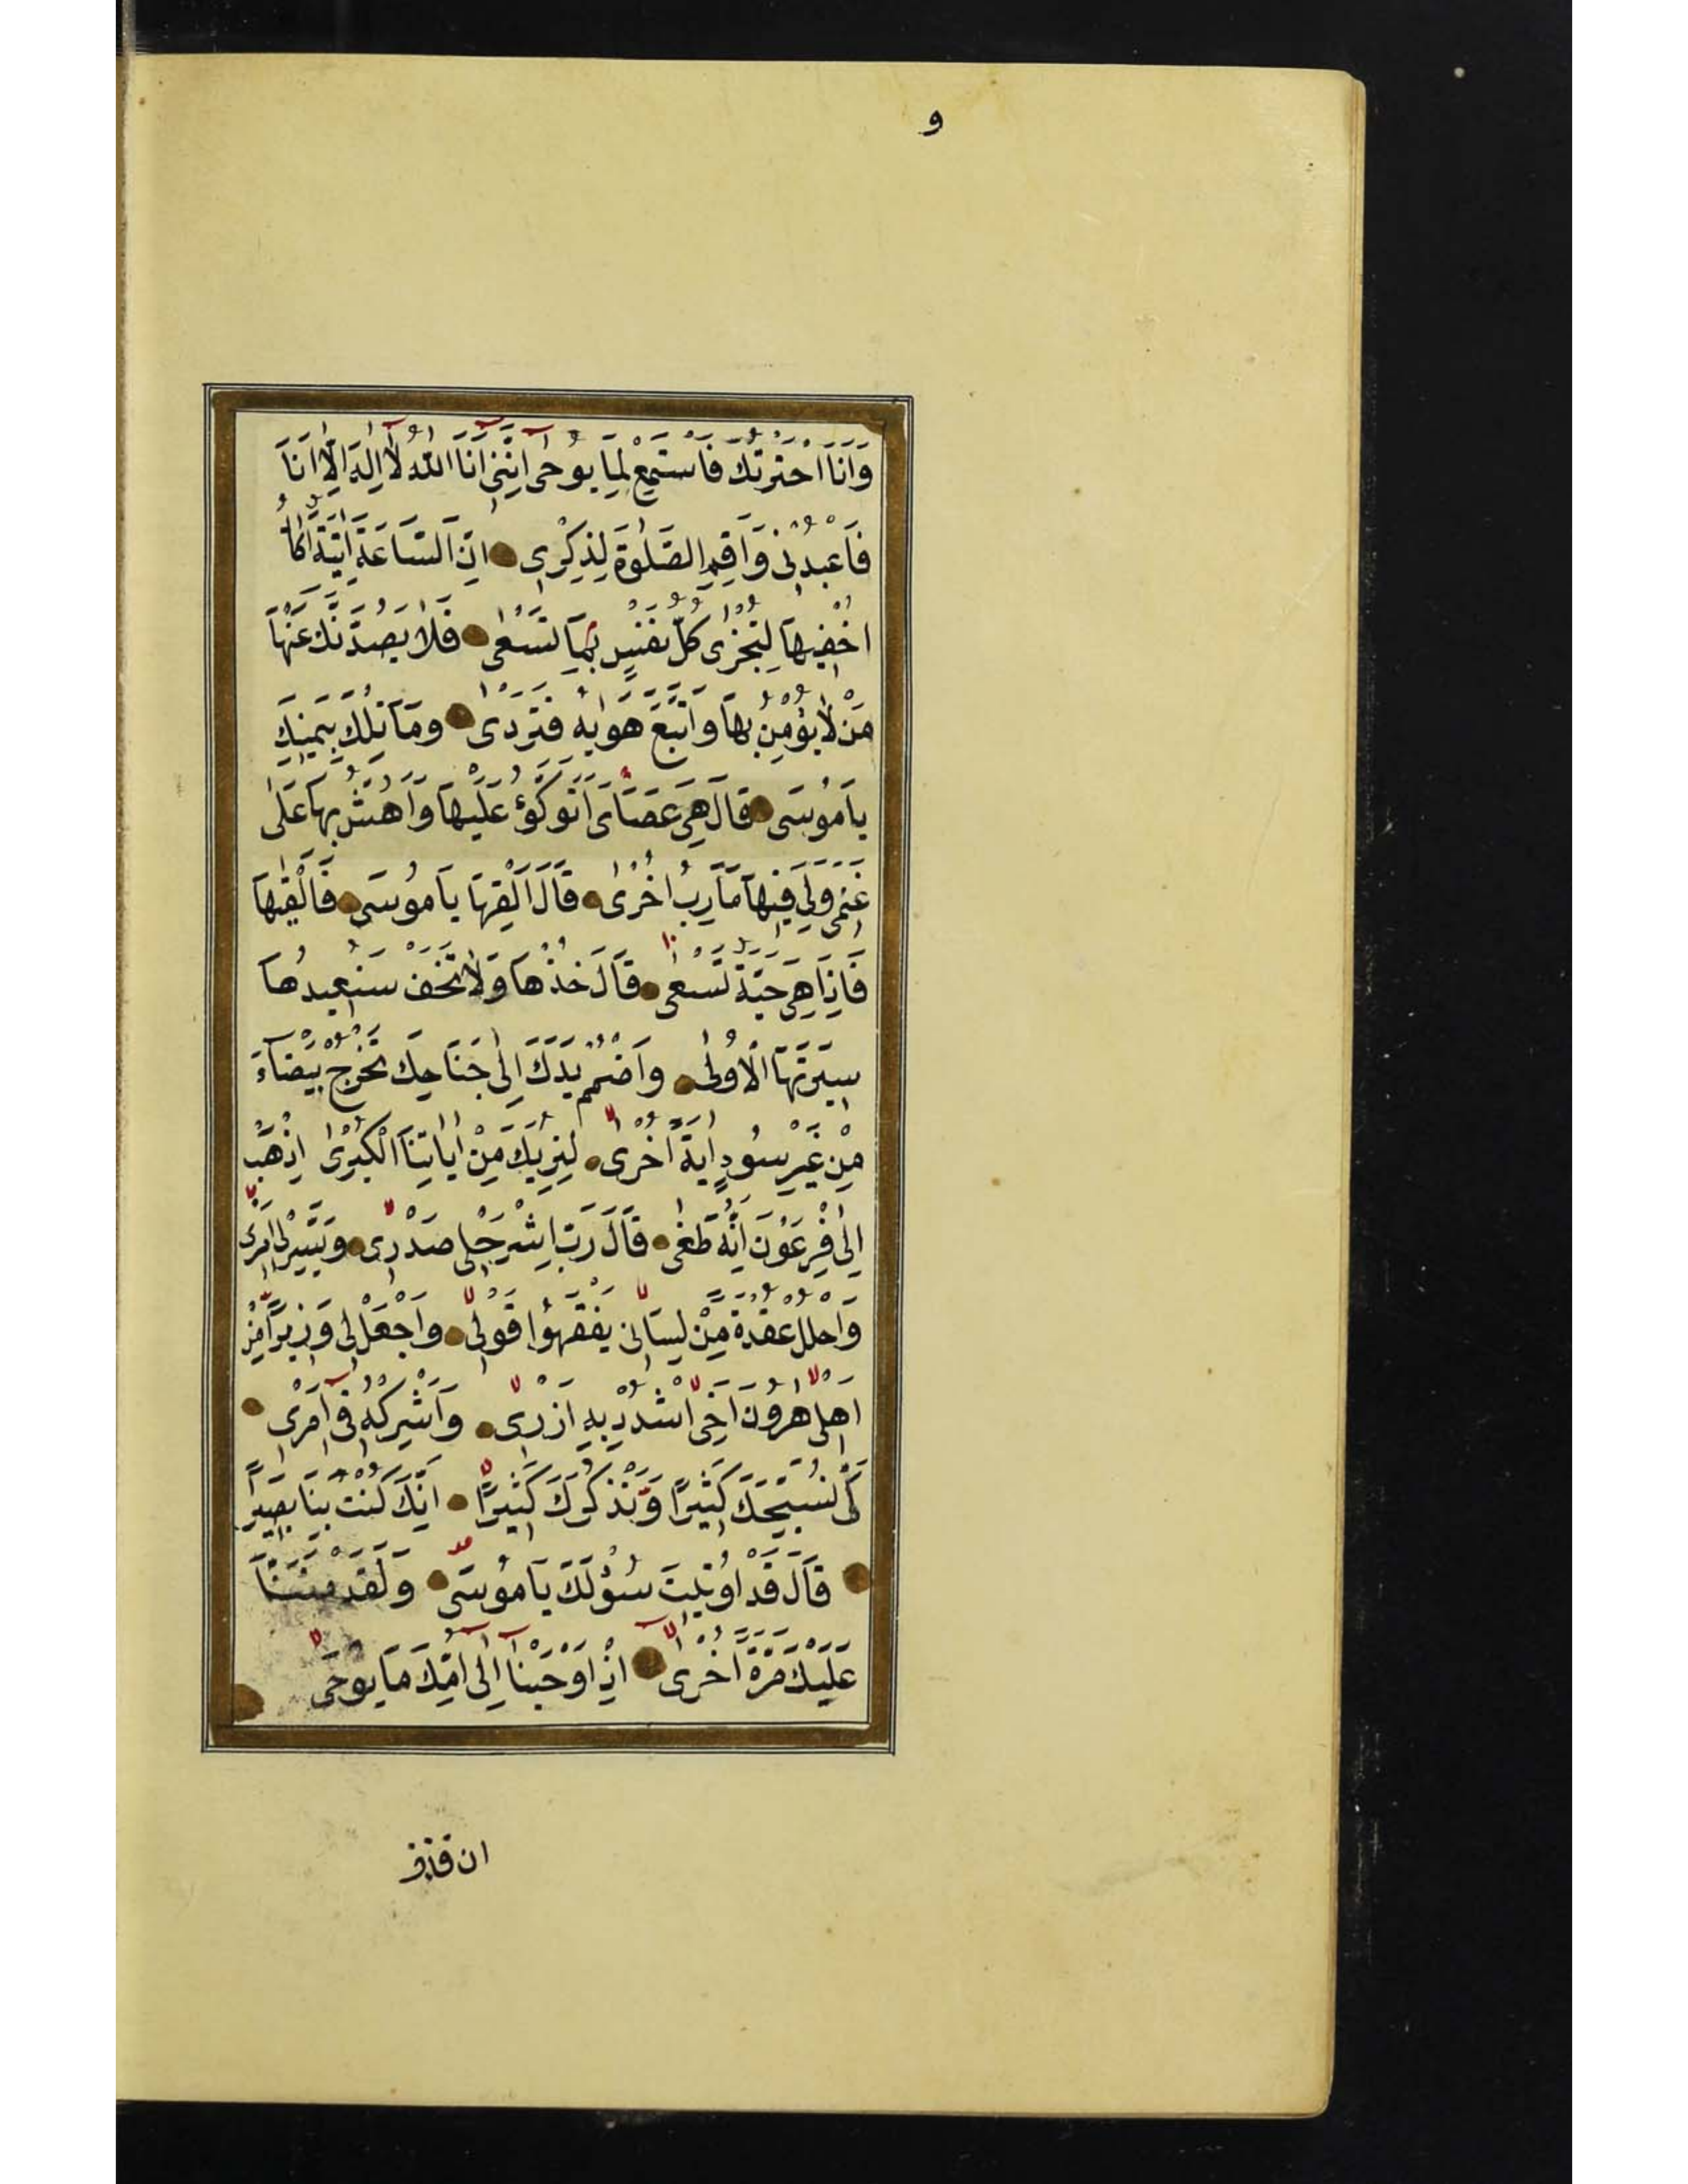 و
وَاَنَا اخْتَرْتُكَ فَاسْتَمِعْ لِمَا يُوحٰى اِنَّنِى اَنَا اللّٰهُ لَا اِلٰهَ اِلَّا اَنَا
فَاعْبُدْنِى وَاَقِمِ الصَّلٰوةَ لِذِكْرِى اِنَّ السَّاعَةَ اٰتِيَةٌ اَكَادُ
اُخْفِيهَا لِتُجْزٰى كُلُّ نَفْسٍ بِمَا تَسْعٰى فَلَا يَصُدَّنَّكَ عَنْهَا
مَنْ لَا يُؤْمِنُ بِهَا وَاتَّبَعَ هَوٰيهُ فَتَرْدٰى وَمَا تِلْكَ بِيَمِينِكَ
يَا مُوسَى قَالَ هِىَ عَصَاىَ اَتَوَكَّؤُ عَلَيْهَا وَاَهُشُّ بِهَا عَلٰى
غَنَمِى وَلِىَ فِيهَا مَاٰرِبُ اُخْرٰى قَالَ اَلْقِهَا يَا مُوسَى فَاَلْقٰيهَا
فَاِذَا هِىَ حَيَّةٌ تَسْعٰى قَالَ خُذْهَا وَلَا تَخَفْ سَنُعِيدُهَا
سِيرَتَهَا الْاُولٰى وَاضْمُمْ يَدَكَ اِلٰى جَنَاحِكَ تَخْرُجْ بَيْضَاءَ
مِنْ غَيْرِ سُوءٍ اٰيَةً اُخْرٰى لِنُرِيَكَ مِنْ اٰيَاتِنَا الْكُبْرٰى اِذْهَبْ
اِلٰى فِرْعَوْنَ اِنَّهُ طَغٰى قَالَ رَبِّ اشْرَحْ لِى صَدْرِى وَيَسِّرْ لِى اَمْرِى
وَاحْلُلْ عُقْدَةً مِنْ لِسَانِى يَفْقَهُوا قَوْلِى وَاجْعَلْ لِى وَزِيرًا مِنْ
اَهْلِى هٰرُونَ اَخِى اشْدُدْ بِهِ اَزْرِى وَاَشْرِكْهُ فِى اَمْرِى
كَىْ نُسَبِّحَكَ كَثِيرًا وَنَذْكُرَكَ كَثِيرًا اِنَّكَ كُنْتَ بِنَا بَصِيرًا
قَالَ قَدْ اُوتِيتَ سُؤْلَكَ يَا مُوسَى وَلَقَدْ مَنَنَّا
عَلَيْكَ مَرَّةً اُخْرٰى اِذْ اَوْحَيْنَا اِلٰى اُمِّكَ مَا يُوحٰى
ان قذف